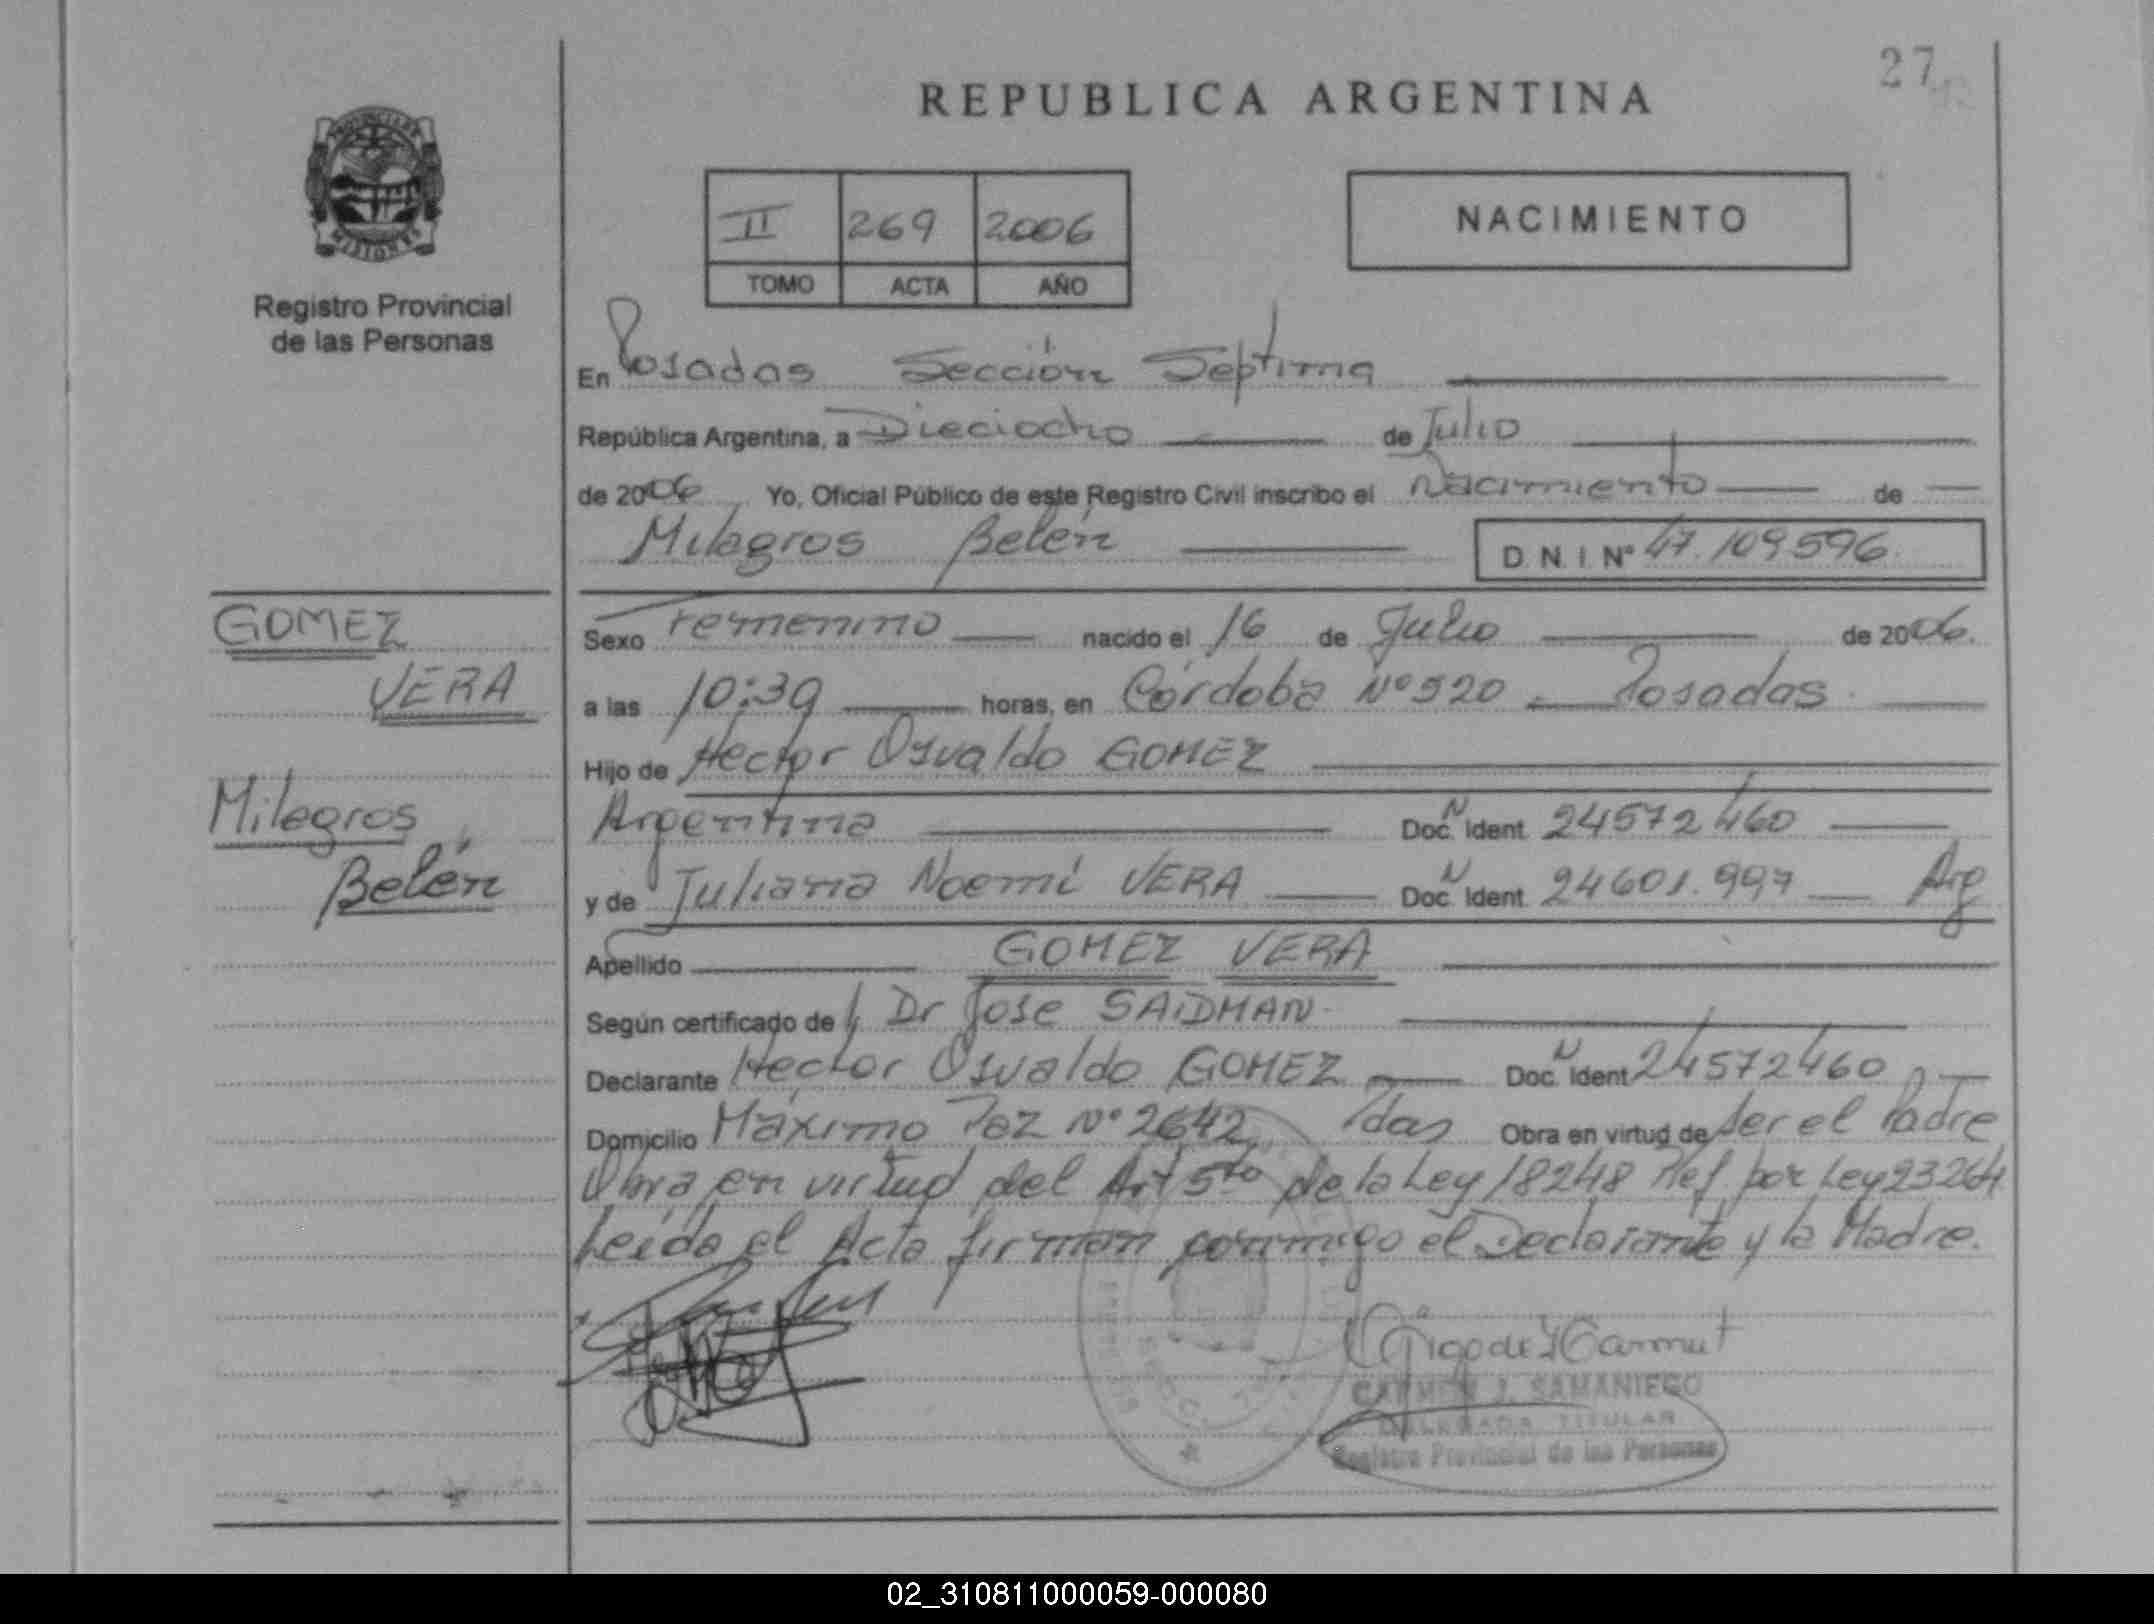 27
REPUBLICA ARGENTINA
PROVINCIA DE
MISIONES
Registro Provincial
de las Personas
II 269 2006
TOMO ACTA AÑO
NACIMIENTO
En Posadas Sección Septima
República Argentina, a Dieciocho de Julio
de 2006 Yo, Oficial Público de este Registro Civil inscribo el Nacimiento de
Milagros Belén D.N.I. Nº 47.109596
GOMEZ
VERA
Milagros
Belén
Sexo Femenino nacido el 16 de Julio de 2006.
a las 10:39 horas, en Córdoba Nº 920 Posadas
Hijo de Hector Osvaldo GOMEZ
Argentina Doc. N Ident 24572460
y de Juliana Noemí VERA Doc. N Ident 24601.997 Arg
Apellido GOMEZ VERA
Según certificado de Dr Jose SAIDMAN
Declarante Hector Osvaldo GOMEZ Doc. N Ident 24572460
Domicilio Máximo Paz Nº 2642, Pdas Obra en virtud de ser el Padre
Obra en virtud del Art 5to de la Ley 18248 Ref. por Ley 23264
Leída el Acta firman conmigo el Declarante y la Madre.
CARMEN J. SAMANIEGO
DELEGADA TITULAR
Registro Provincial de las Personas
02_310811000059-000080